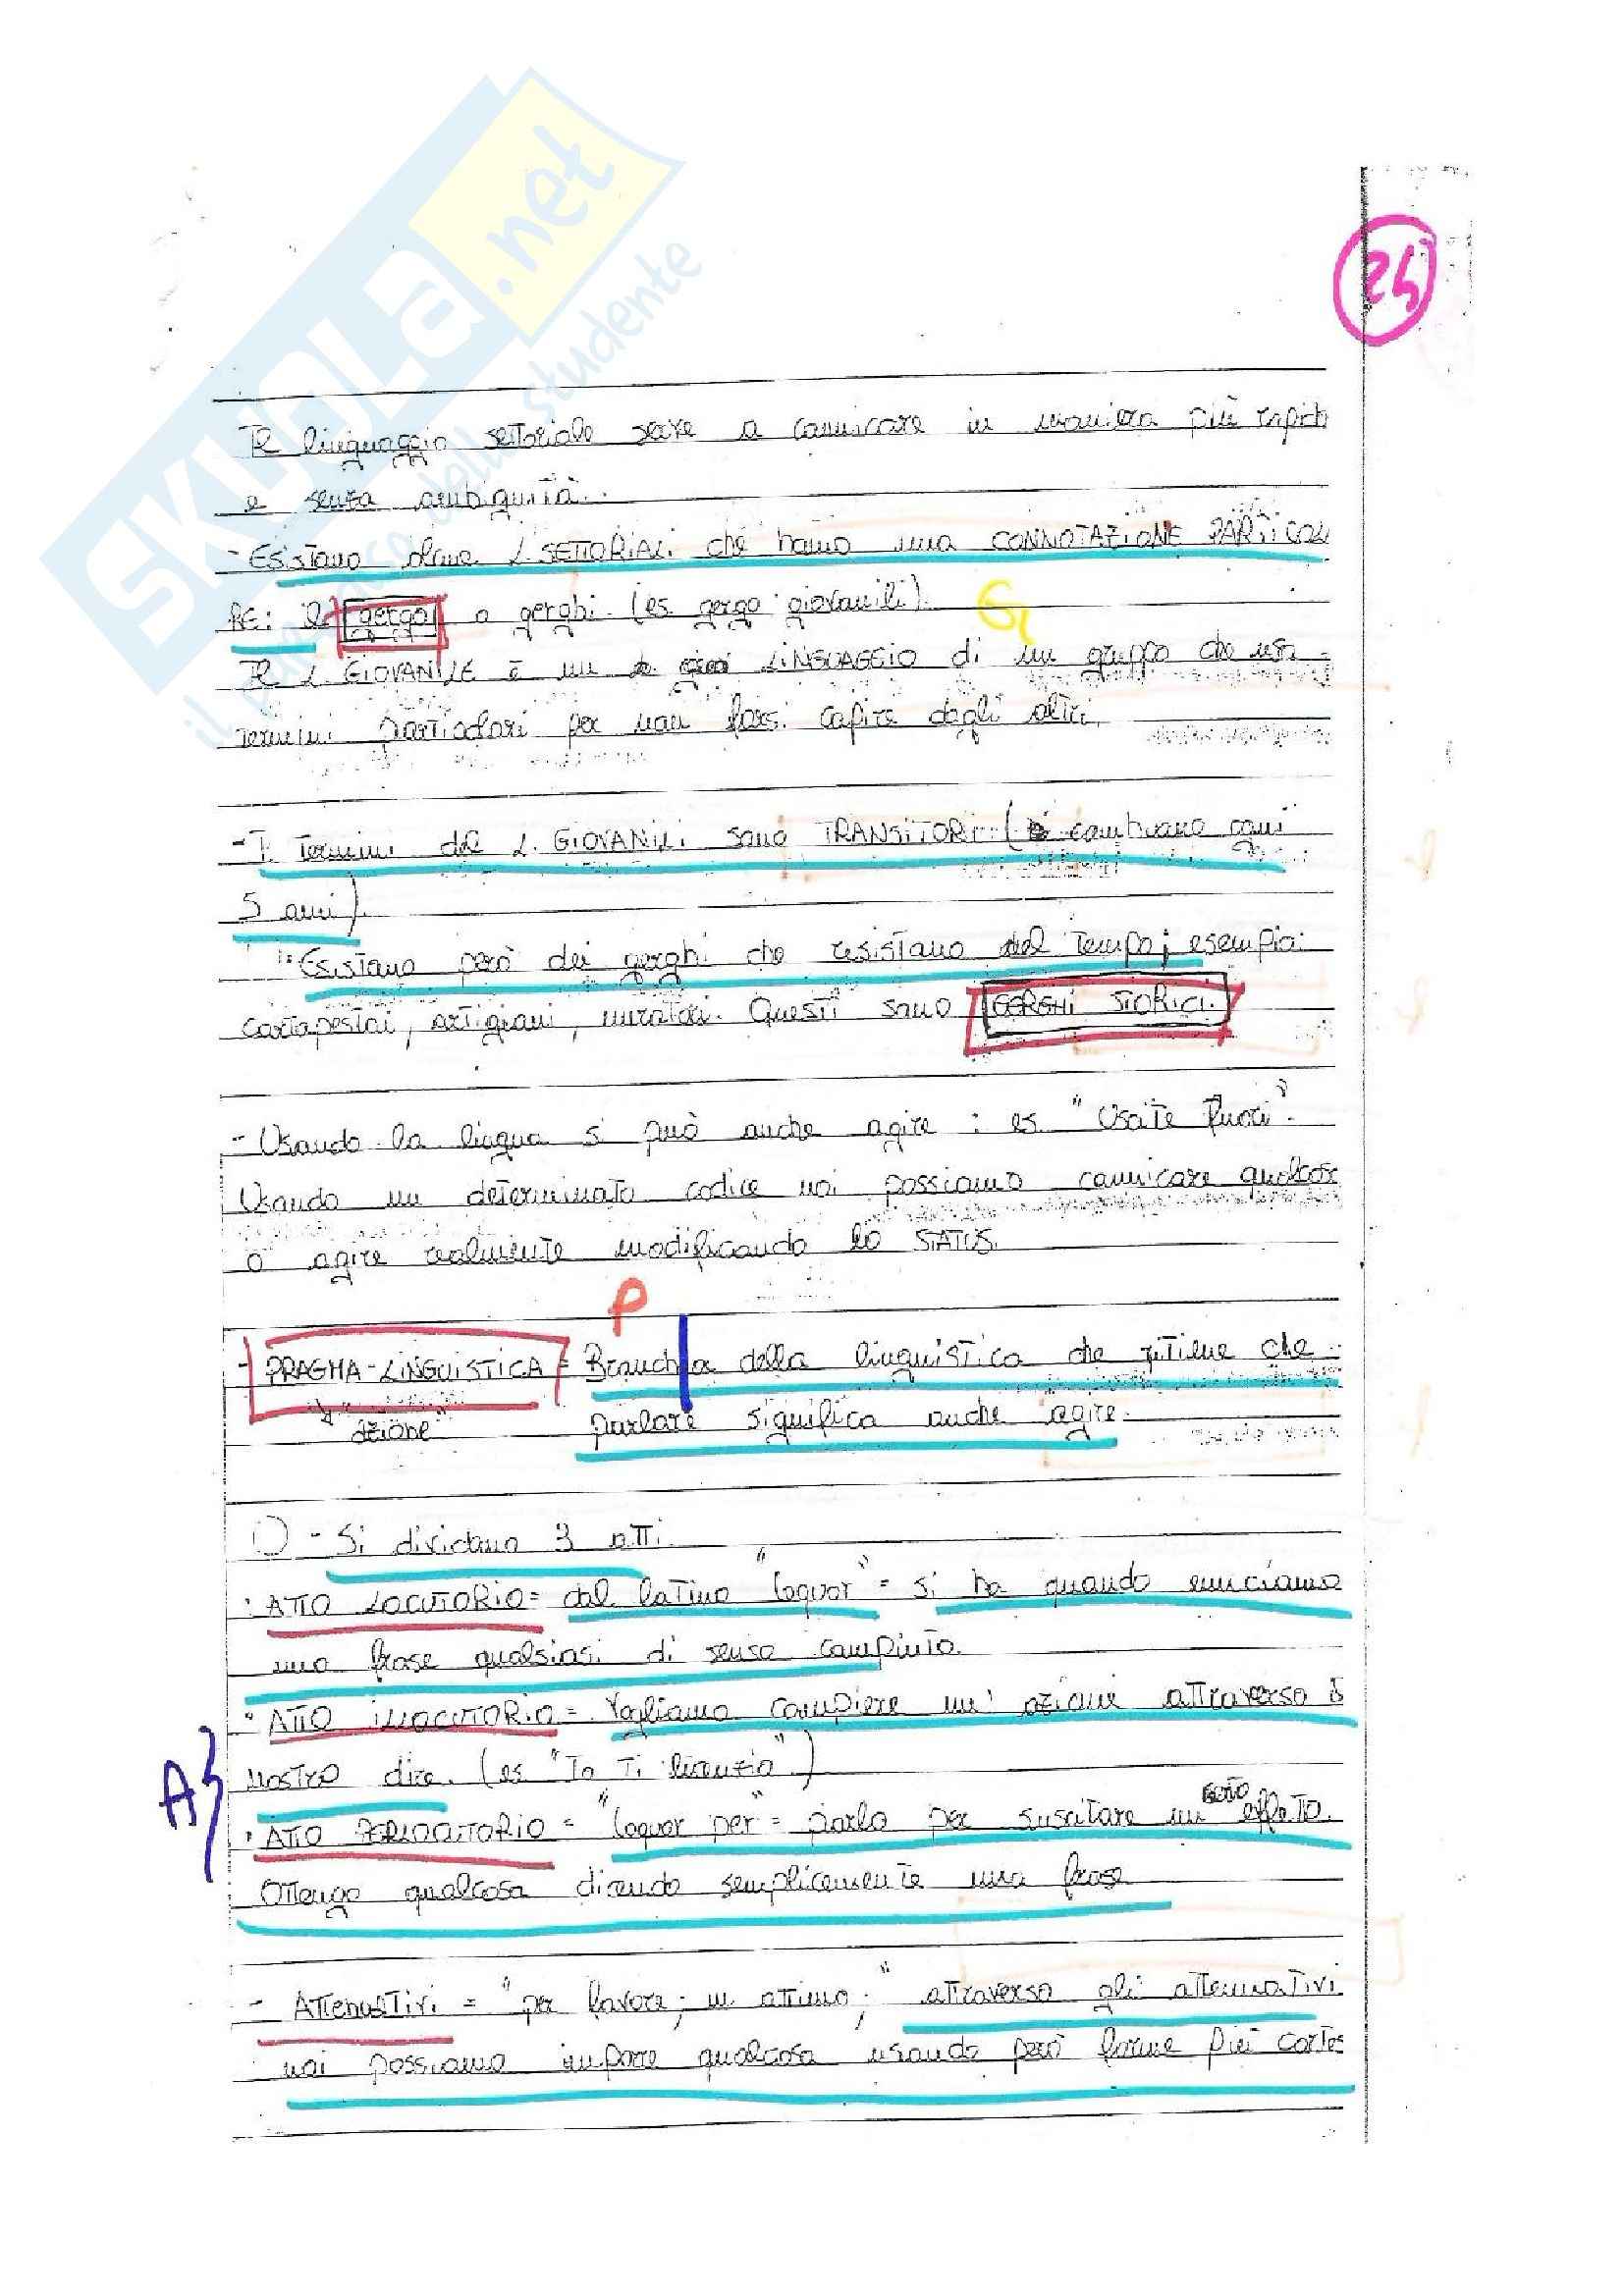 SKUOLA.net
il paradiso dello studente
24
Il linguaggio settoriale serve a comunicare in maniera più rapid
e senza ambiguità.
- Esistono alcune L. SETTORIALI che hanno una CONNOTAZIONE PARTICOLA
RE: il gergo o gerghi. (es. gergo giovanili).
G
Il L. GIOVANILE è un LINGUAGGIO di un gruppo che usa
termini particolari per non farsi capire dagli altri.
- I termini del L. GIOVANILI sono TRANSITORI (cambiano ogni
5 anni).
Esistono però dei gerghi che resistono del tempo; esempio:
cartapestai, artigiani, muratori. Questi sono GERGHI STORICI.
- Usando la lingua si può anche agire : es "Uscite fuori".
Usando un determinato codice noi possiamo comunicare qualcos
o agire realmente modificando lo STATUS.
P
- PRAGMA-LINGUISTICA = Branchia della linguistica che ritiene che
"azione" parlare significa anche agire.
1) - Si dividono 3 atti.
· ATTO LOCUTORIO = dal latino "loquor" = si ha quando enunciamo
una frase qualsiasi di senso compiuto.
· ATTO ILLOCUTORIO = Vogliamo compiere un' azione attraverso il
nostro dire. (es "Io ti licenzio")
A3
· ATTO PERLOCUTORIO = "loquor per" = parlo per suscitare un effetto.
Ottengo qualcosa dicendo semplicemente una frase
- Attenuativi = "per favore; un attimo;" attraverso gli attenuativi
noi possiamo imporre qualcosa usando però forme più cortes